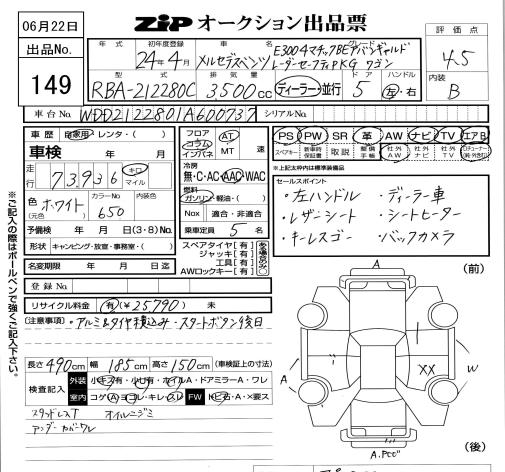 06月22日
ZIP オークション出品票
出品No.
149
評価点
4.5
内装
B
年式
初年度登録
24年4月
車名
メルセデスベンツ
グレード
E300 4マチックBEアバンギャルド
レーダーセーフティPKG ワゴン
型式
RBA-212280C
排気量
3,500cc
ディーラー・並行
ドア
5
ハンドル
左・右
車台No.
WDD2122801A600737
シリアルNo.
車歴
自家用・レンタ・( )
車検
年 月
走行
73,936
キロ
マイル
色
(元色)
ホワイト
カラーNo
650
内装色
予備検 年 月 日(3・8)No.
形状 キャンピング・放室・事務室・( )
名変期限 年 月 日迄
登録No.
リサイクル料金 有(¥25790) 未
フロア
コラム
インパネ
AT
MT
速
冷房
無・C・AC・AAC・WAC
燃料
ガソリン・軽油・( )
Nox 適合・非適合
乗車定員 5 名
スペアタイヤ[有]
ジャッキ[有]
工具[有]
AWロックキー[有]
PS PW SR 革 AW ナビ TV エアB
スペアキー 新車時保証書 取説 整備手帳 社外AW 社外ナビ 社外TV
*上記太枠内は標準装備品
セールスポイント
・左ハンドル ・ディーラー車
・レザーシート ・シートヒーター
・キーレスゴー ・バックカメラ
(注意事項) ・アルミ&タイヤ積込み・スタートボタン後日
長さ490cm 幅185cm 高さ150cm (車検証上の寸法)
検査記入
外装 小キズ有・小凹有・ホイルA・ドアミラーA・ワレ
室内 コゲA・ヨゴレ・キレ・スレ FW トビ石・A・×要ス
スタッドレスT オイルニジミ
アンダーカバーワレ
※ご記入の際はボールペンで強くご記入下さい。
(前)
A
A
XX
W
A.Pcc"
(後)